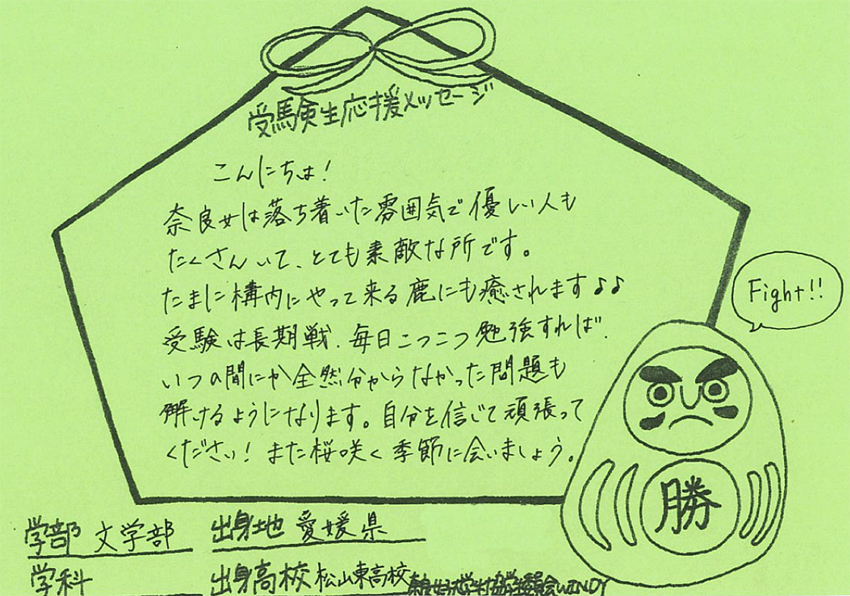 受験生応援メッセージ
こんにちは!
奈良女は落ち着いた雰囲気で優しい人も
たくさんいて、とても素敵な所です。
たまに構内にやって来る鹿にも癒されます♪♪
受験は長期戦、毎日こつこつ勉強すれば、
いつの間にか全然分からなかった問題も
解けるようになります。自分を信じて頑張って
ください! また桜咲く季節に会いましょう。
Fight!!
勝
学部 文学部 出身地 愛媛県
学科 出身高校 松山東高校
WINDY